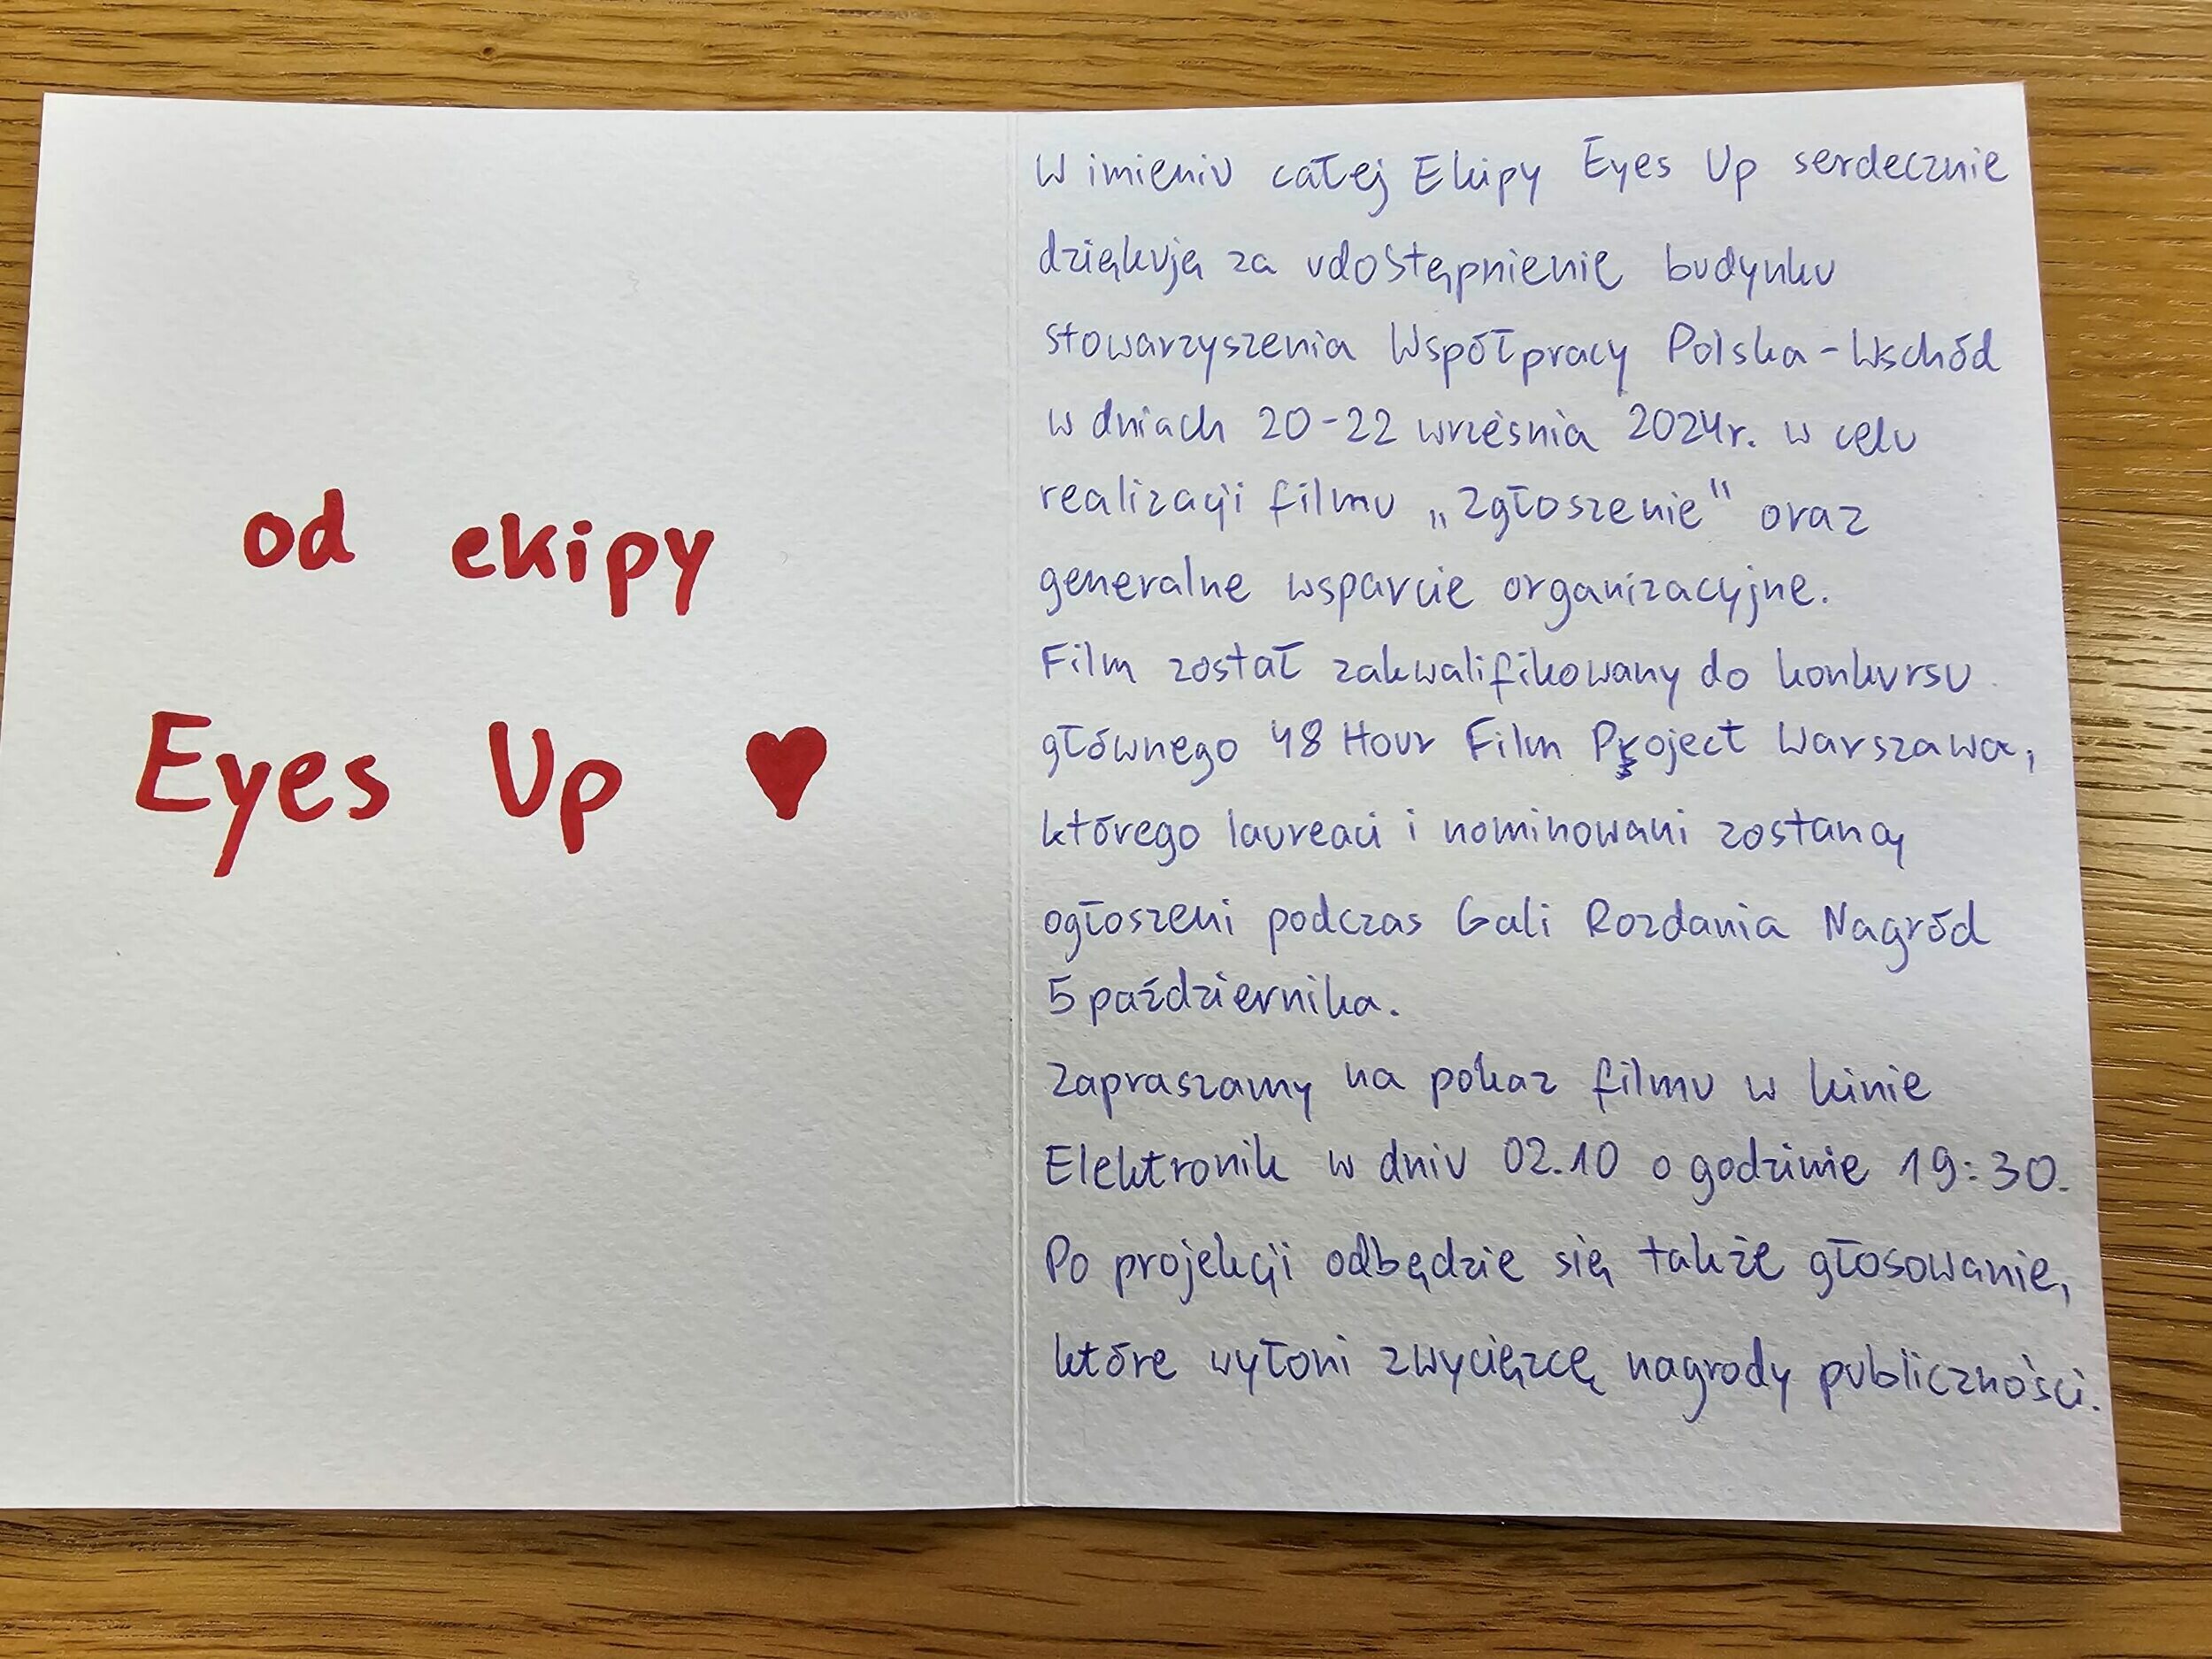 od ekipy
Eyes Up ♥
W imieniu całej Ekipy Eyes Up serdecznie
dziękuję za udostępnienie budynku
stowarzyszenia Współpracy Polska-Wschód
w dniach 20-22 września 2024r. w celu
realizacji filmu „Zgłoszenie" oraz
generalne wsparcie organizacyjne.
Film został zakwalifikowany do konkursu
głównego 48 Hour Film Project Warszawa,
którego laureaci i nominowani zostaną
ogłoszeni podczas Gali Rozdania Nagród
5 października.
Zapraszamy na pokaz filmu w kinie
Elektronik w dniu 02.10 o godzinie 19:30.
Po projekcji odbędzie się także głosowanie,
które wyłoni zwycięzcę nagrody publiczności.